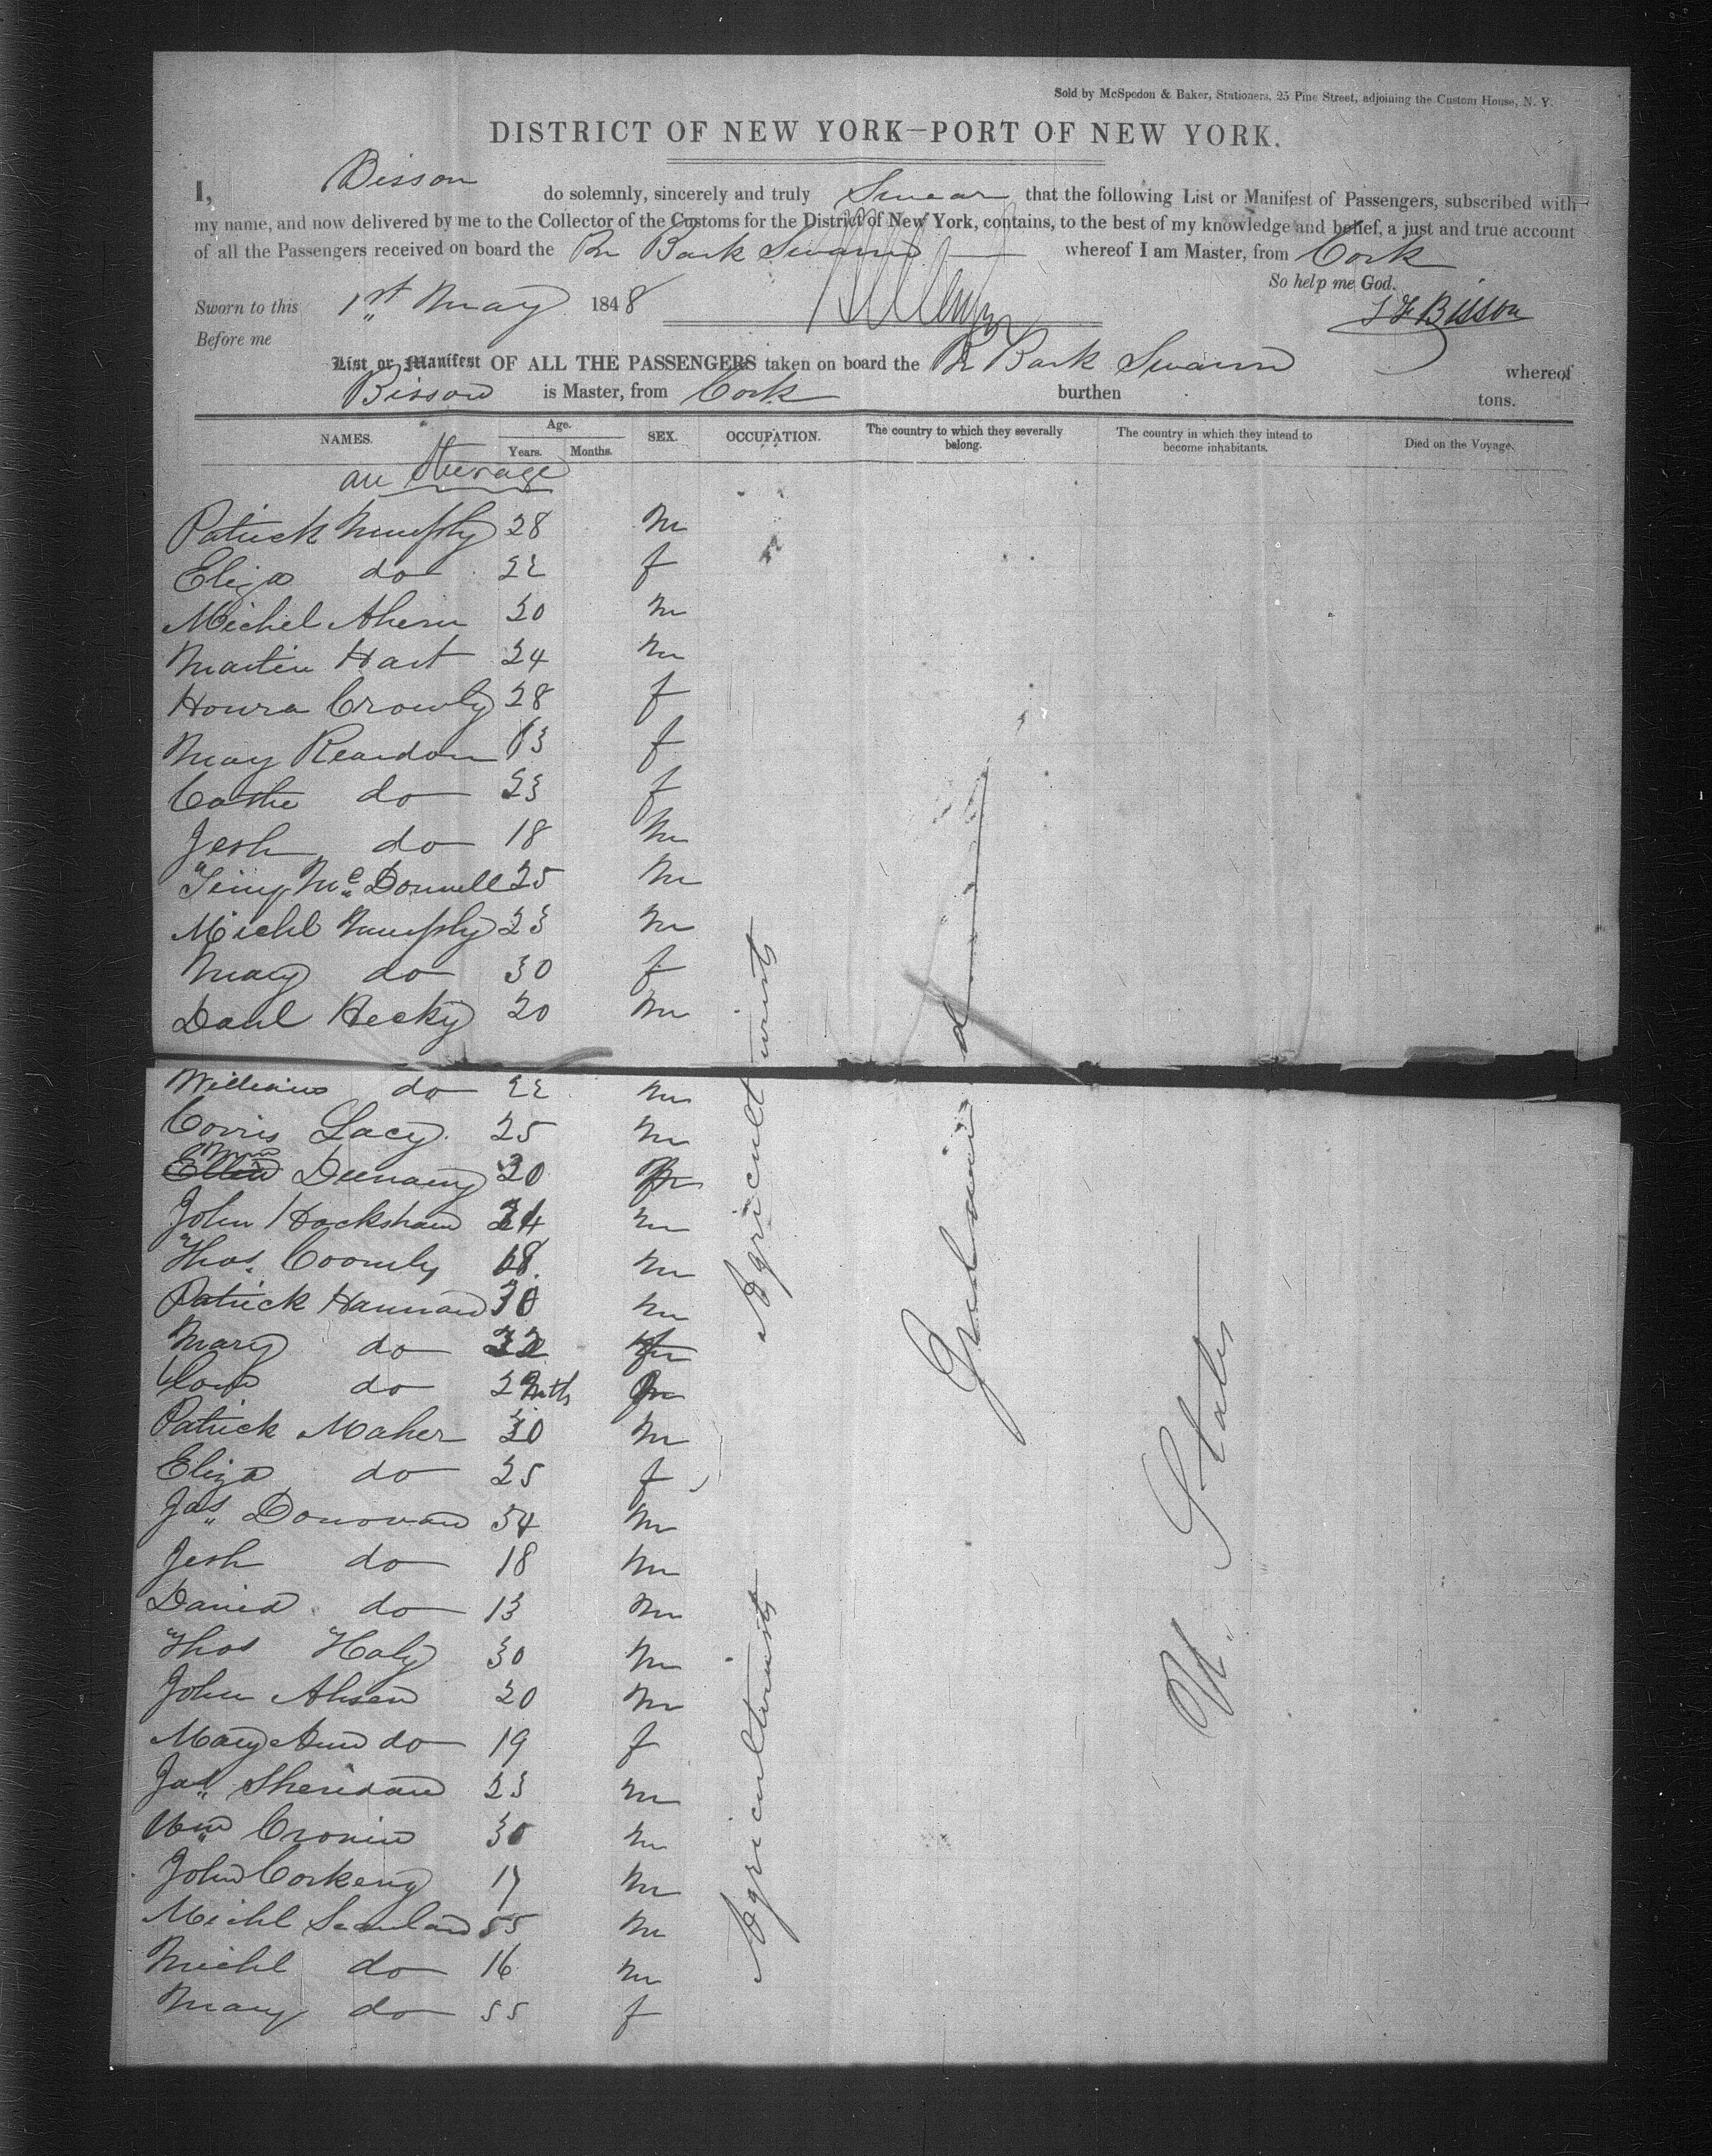 Sold by McSpedon & Baker, Stationers, 25 Pine Street, adjoining the Custom House, N. Y.
DISTRICT OF NEW YORK—PORT OF NEW YORK.
I, Bisson do solemnly, sincerely and truly Swear that the following List or Manifest of Passengers, subscribed with
my name, and now delivered by me to the Collector of the Customs for the District of New York, contains, to the best of my knowledge and belief, a just and true account
of all the Passengers received on board the Br Bark Swann whereof I am Master, from Cork
So help me God.
Sworn to this 1st May 1848 J F Bisson
Before me
List or Manifest OF ALL THE PASSENGERS taken on board the Br Bark Swann whereof
Bisson is Master, from Cork burthen tons.
NAMES. Age. Years. Months. SEX. OCCUPATION. The country to which they severally belong. The country in which they intend to become inhabitants. Died on the Voyage.
all Steerage
Patrick Murphy 28 m
Eliza do 22 f
Michel Ahern 20 m
Martin Hart 24 m
Honra Crowly 28 f
May Reardon 13 f
Cathe do 23 f
Jerh do 18 m
Timy McDonnell 25 m
Michl Murphy 23 m
Mary do 30 f
Danl Hecky 20 m
William do 22 m
Corris Lacy 25 m
Deenamy 20
John Hackshaw 24 m
Thos. Coomly 18 m
Patrick Hannan 30 m
Mary do 32
do
Patrick Maher 30 m
Eliza do 25 f
Jas Donovan 54 m
Jerh do 18 m
David do 13 m
Thos Haly 30 m
John Ahern 20 m
Mary Ann do 19 f
Jas Sheridan 23 m
Wm Cronin 30 m
John Corkeny 17 m
Michl Scanlan 55 m
Michl do 16 m
Mary do 55 f
Agriculturists
Agriculturists
U. States